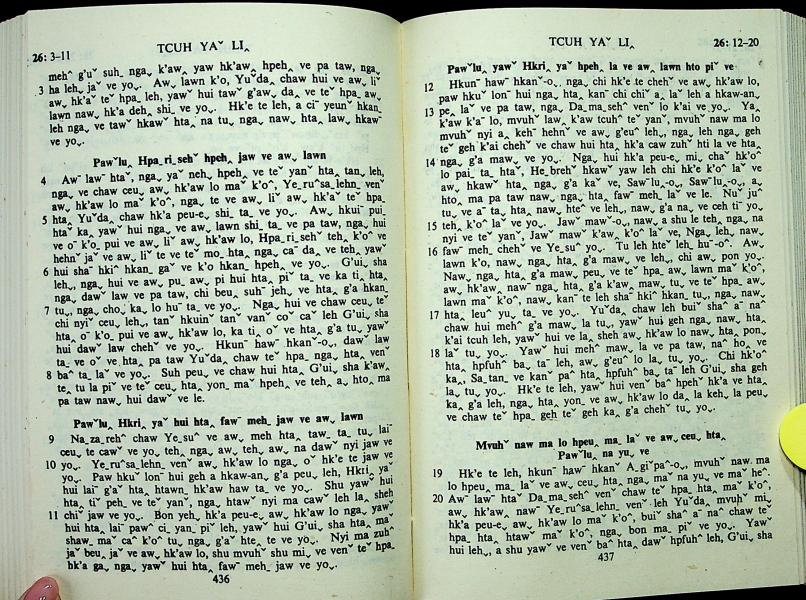 26: 3-11
TCUH YAˇ LI‸
meh^ g'uˇ suh_ nga˯ k'aw˯ yaw hk'aw˯ hpeh˰ ve pa taw, nga˯
3 ha leh˯ jaˇ ve yo˯. Aw˯ lawn k'o, Yuˇda˯ chaw hui ve aw˯ liˇ
aw˯ hk'aˇ teˇ hpa˯ leh, yawˇ hui tawˇ g'aw˯ da˯ ve teˇ hpa˯ aw˯
lawn naw˯ hk'a deh˯ shi_ ve yo˯. Hk'e te leh, a ciˆ yeunˇ hkan˯
leh nga˯ ve tawˇ hkawˇ hta˯ na tu˯ nga˯ naw˯ hta˯ law˯ hkawˇ
ve yo˯.
Pawˇlu˰ Hpa_ri_sehˇ hpeh˰ jaw ve aw˯ lawn
4 Awˇ lawˇ htaˇ, nga˯ yaˇ neh˯ hpeh˰ ve teˇ yanˇ hta˰ tan˯ leh,
nga˯ ve chaw ceu˯ aw˯ hk'aw lo maˇ k'oˆ, Ye˯ruˆsa_lehn˯ venˇ
aw˯ hk'aw lo maˇ k'oˆ, nga˯ te ve aw˯ liˇ aw˯ hk'aˇ teˇ hpaˇ
5 hta˰ Yuˇda˯ chaw hk'a peu-e˯ shi_ ta˯ ve yo˯. Aw˯ hkuiˇ pui˯
htaˇ ka˯ yawˇ hui nga˯ ve aw˯ lawn shi_ ta˯ ve pa taw, nga˯ hui
ve oˇ k'o˰ pui ve aw˯ liˇ aw˯ hk'aw lo, Hpa_ri_sehˇ teh˯ k'oˆ ve
hehnˇ jaˇ ve aw˯ liˇ te ve teˇ mo_ hta˰ nga˯ caˇ da˯ ve teh˯ yawˇ
6 hui shaˉ hkiˆ hkan_ gaˇ ve k'o hkan_ hpeh˰ ve yo˯. G'ui˯ sha
leh˯, nga˯ hui ve aw˯ pu_ aw˯ pi hui hta˰ piˇ ta˯ ve ka ti_ hta˰
nga˯ dawˇ law ve pa taw, chi beu˰ suhˉ jeh˯ ve hta˰ g'a hkan_
7 tu˯, nga˯ cho˰ ka_ lo huˉ ta˯ ve yo˯. Nga˯ hui ve chaw ceu˰ teˇ
chi nyiˇ ceu˰ leh˯, tanˇ hkuinˇ tanˇ vanˇ coˇ caˇ leh G'ui˯ sha
hta˰ oˆ k'o˰ pui ve aw˯ hk'aw lo, ka ti_ oˇ ve hta˰ g'a tu˯ yawˇ
hui dawˇ law chehˇ ve yo˯. Hkunˉ hawˇ hkanˇ-o˯, dawˇ law
ta˯ ve oˇ ve hta˰ pa taw Yuˇda˯ chaw teˇ hpa˯ nga˯ hta˰ venˇ
8 baˆ ta_ laˇ ve yo˯. Suh peu˯ ve chaw hui hta˰ G'ui˯ sha k'aw˯
te˯ tu la piˇ ve teˇ ceu˰ hta˰ yon_ maˇ hpeh˰ ve teh˯ a˯ hto˰ ma
pa taw naw˯ hui dawˇ ve le.
Pawˇlu˰ Hkri˰ yaˇ hui hta˰ fawˇ meh_ jaw ve aw˯ lawn
9 Na_za_rehˆ chaw Ye˯suˆ ve aw˯ meh hta˰ taw_ ta˯ tu˯ laiˇ
ceu˰ te cawˇ ve yo˯ teh˯ nga˯ aw˯ teh˯ aw˯ na dawˇ nyi jaw ve
10 yo˯. Ye˯ruˆsa_lehn˯ venˇ aw˯ hk'aw lo nga˯ oˇ hk'e te jaw ve
yo˯. Paw hkuˇ lonˉ hui geh a hkaw-an˯ g'a peu˯ leh, Hkri˰ yaˇ
hui laiˇ g'aˇ hta˰ htawn˰ hk'aw hawˇ ta˯ ve yo˯. Shu yawˇ hui
hta˰ tiˇ peh˯ ve teˇ yanˇ, nga˯ htawˇ nyi ma cawˇ leh la˰ sheh
11 chiˇ jaw ve yo˯. Bon yeh˯ hk'a peu-e˯ aw˯ hk'aw lo nga˯ yawˇ
hui hta˰ lai pawˇ ci˰ yan_ piˇ leh, yawˇ hui G'ui˯ sha hta˰ maˇ
shaw_ maˇ caˇ k'oˆ tu˯, nga˯ g'aˇ hte˰ te ve yo˯. Nyi ma zuhˇ
jaˇ beu˰ jaˇ ve aw˯ hk'aw lo, shu mvuhˇ shu mi˯ ve venˇ teˇ hpa_
hk'a ga˰ nga˯ yawˇ hui hta˰ fawˇ meh_ jaw ve yo˯.
436
TCUH YAˇ LI‸
26: 12-20
Pawˇlu˰ yawˇ Hkri˰ yaˇ hpeh˰ la ve aw˯ lawn hto piˇ ve
12 Hkunˉ hawˇ hkanˇ-o˯, nga˯ chi hk'e te chehˇ ve aw˯ hk'aw lo,
paw hkuˇ lonˉ hui nga˯ hta˰ kanˉ chi chiˇ a˰ laˇ leh a hkaw-an˯
13 pe˰ laˇ ve pa taw, nga˯ Da_ma_sehˆ venˇ lo k'ai ve yo˯. Ya˰
k'aw kˇa lo, mvuhˇ law˰ k'aw tcuhˆ teˇ yanˇ, mvuhˇ naw ma lo
mvuhˇ nyi a˰ kehˇ hehnˇ ve aw˯ g'euˇ leh˯, nga˯ leh nga˯ geh
teˇ gehˇ k'ai chehˇ ve chaw hui hta˰ hk'a caw zuhˇ hti la ve hta˰
14 nga˯ g'a maw˰ ve yo˯. Nga˯ hui hk'a peu-e˯ mi˰ chaˇ hk'oˆ
lo pai_ ta_ htaˇ, He_brehˇ hkawˇ yaw leh chi hk'e k'oˆ laˇ ve
aw˯ hkawˇ hta˰ nga˯ g'a kaˇ ve, Sawˇlu˰-o˯, Sawˇlu˰-o˯, a˯
hto˰ ma pa taw naw˯ nga˯ hta˰ fawˇ meh_ laˇ ve le. Nuˇ juˆ
tu˯ ve aˉ ta˯ hta˰ naw˯ hteˇ ve leh˯, naw˯ g'a na˰ ve ceh tiˇ yo˯
15 teh˯ k'oˆ laˇ ve yo˯. Jawˇ mawˇ-o˯, naw˯ a shu le teh˯ nga˯ na
nyi ve teˇ yanˇ, Jawˇ mawˇ k'aw˯ k'oˆ laˇ ve, Nga˯ leh˯ naw˯
16 fawˇ meh_ chehˇ ve Ye˯suˆ yo˯. Tu leh hteˇ leh_ huˉ-oˆ. Aw˯
lawn k'o, naw˯ nga˯ hta˰ g'a maw˰ ve leh˯, chi aw˯ pon yo˯.
Naw˯ nga˯ hta˰ g'a maw˰ peu˯ ve teˇ hpa˯ aw˯ lawn maˇ k'oˆ,
aw˯ hk'aw˰ nawˇ nga˯ hta˰ g'a k'aw˯ maw˰ tu˯ ve teˇ hpa˯ aw˯
lawn maˇ k'oˆ, naw˯ kanˉ te leh shaˉ hkiˆ hkan_ tu˯, nga˯ naw˯
17 hta˰ leuˇ yu˯ ta˯ ve yo˯. Yuˇda˯ chaw leh buiˇ shaˆ aˉ naˇ
chaw hui mehˇ g'a maw˰ la tu˯, yawˇ hui geh nga˯ naw˯ hta˰
k'ai tcuh leh, yawˇ hui ve la˰ sheh aw˯ hk'aw lo naw˯ hta˰ pon_
18 laˇ tu˯ yo˯. Yawˇ hui mehˇ maw˰ la ve pa taw, naˇ ho˰ ve
hta˰ hpfuhˇ ba˰ taˉ leh, aw˯ g'euˇ lo la˯ tu˯ yo˯. Chi hk'oˆ
ka˰, Sa_tan_ ve kanˇ paˆ hta˰ hpfuhˇ ba˰ taˉ leh G'ui˯ sha geh
la˯ tu˯ yo˯. Hk'e te leh, yawˇ hui venˇ baˆ hpehˇ hk'a ve hta˰
ka˰ g'a leh, nga˯ hta˰ yon_ ve aw˯ hk'aw lo da˯ la keh˯ la peu˯
ve chaw teˇ hpa˯ geh teˇ geh ka˰ g'a chehˇ tu˯ yo˯.
Mvuhˇ naw ma lo hpeu˰ ma_ laˇ ve aw˯ ceu˰ hta˰
Pawˇlu˰ na yu˯ ve
19 Hk'e te leh, hkunˉ hawˇ hkanˇ A_giˇpaˆ-o˯, mvuhˇ naw ma
lo hpeu˰ ma_ laˇ ve aw˯ ceu˰ hta˰ nga˯ maˇ na yu˯ ve maˇ heˆ.
20 Awˇ lawˇ htaˇ Da_ma_sehˆ venˇ chaw teˇ hpa_ hta˰ maˇ k'oˆ,
aw˯ hk'aw˰ nawˇ Ye˯ruˆsa_lehn˯ venˇ leh Yuˇda˯ mvuhˇ mi˯
hk'a peu-e˯ aw˯ hk'aw lo maˇ k'oˆ, buiˇ shaˆ aˉ naˇ chaw teˇ
hpa_ hta˰ htawˇ maˇ k'oˆ, nga˯ bon ma_ piˇ ve yo˯. Yawˇ
hui leh˯, a shu yawˇ ve venˇ baˆ hta˰ dawˇ hpfuhˆ leh, G'ui˯ sha
437